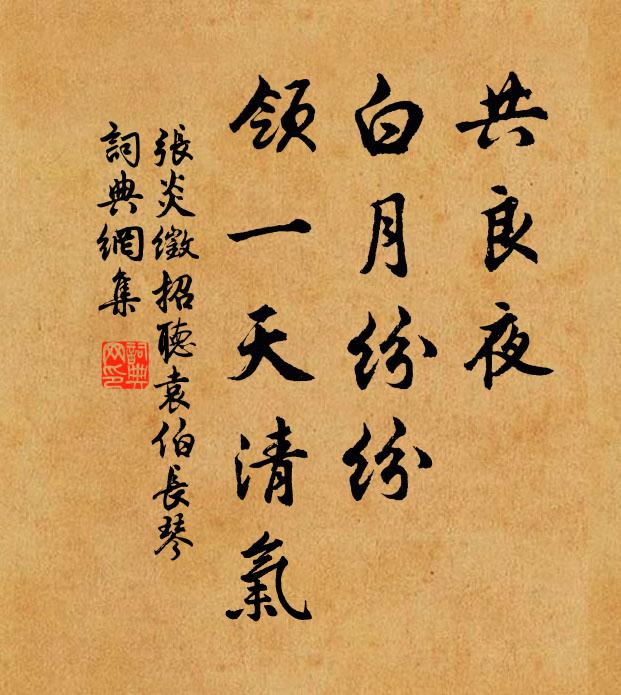 共良夜
白月纷纷
领一天清氣
張炎徵招聽袁伯長琴
詞典網集
詞典网印